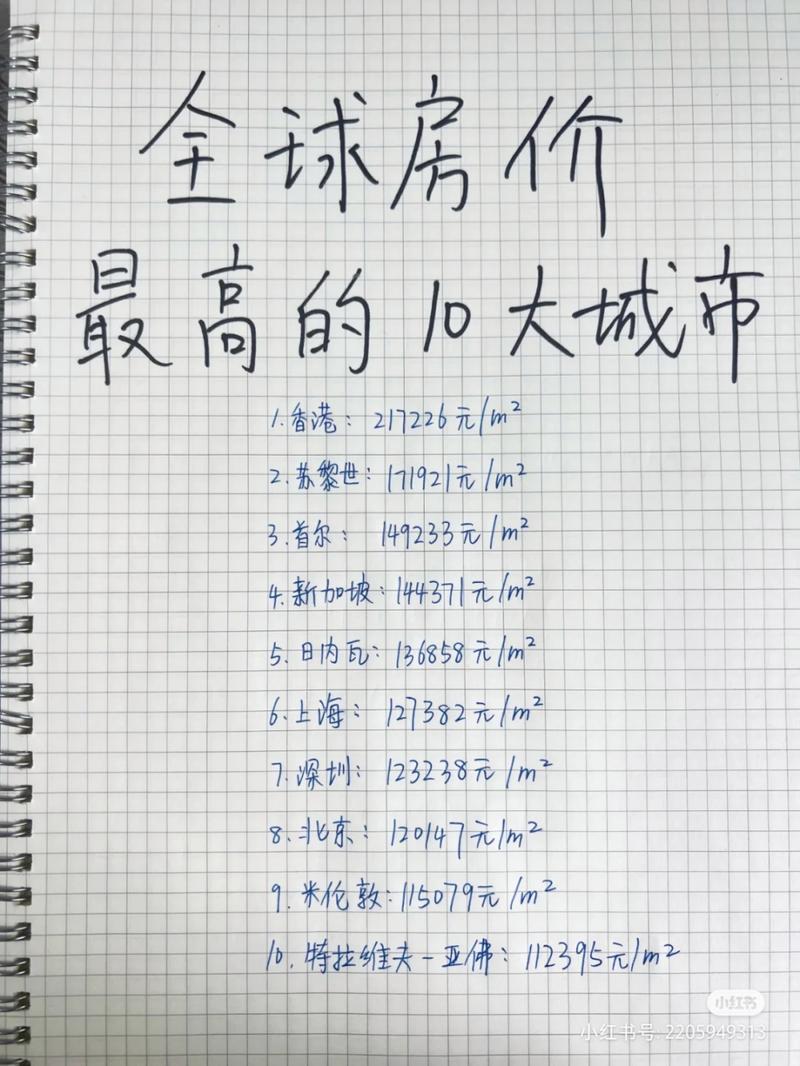 全球房价
最高的10大城市
1.香港: 217226元/m²
2.苏黎世: 171921元/m²
3.首尔: 149233元/m²
4.新加坡: 144371元/m²
5.日内瓦: 136858元/m²
6.上海: 127382元/m²
7.深圳: 123238元/m²
8.北京: 120147元/m²
9.米伦敦: 115079元/m²
10.特拉维夫-亚佛: 112395元/m²
小红书
小红书号: 2205949313